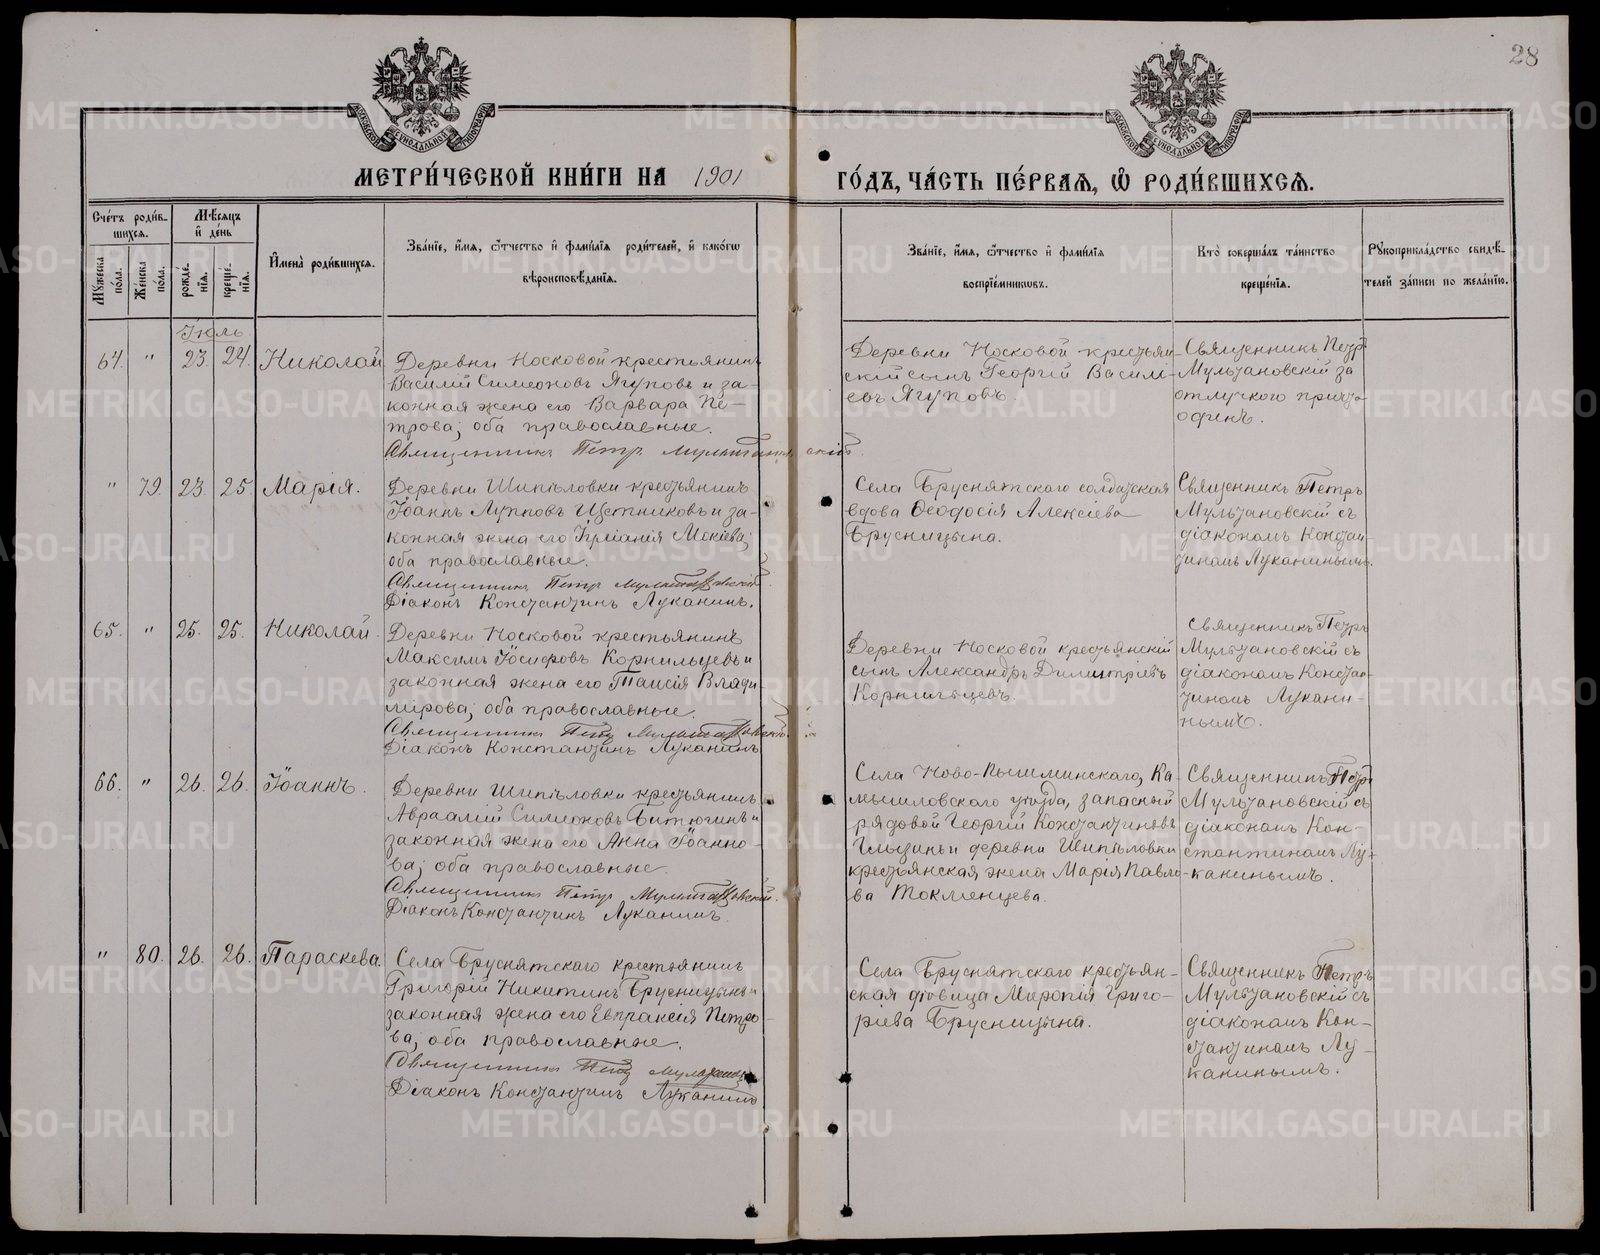 28
МЕТРИ́ЧЕСКОЙ КНИ́ГИ НА 1901
ГО́ДЪ, ЧА́СТЬ ПЕ́РВАЯ, Ѿ РОДИ́ВШИХСѦ.
Сче́тъ роди́в-
шихсѧ.
Мꙋ́жеска по́ла.
Же́нска по́ла.
Мѣ́сѧцъ
и҆ де́нь
рожде́-
нїѧ.
креще́-
нїѧ.
И҆мена̀ роди́вшихсѧ.
Зва́нїе, и҆́мѧ, ѻ҆́тчество и҆ фами́лїѧ роди́телей, и҆ како́гѡ
вѣроисповѣ́данїѧ.
Зва́нїе, и҆́мѧ, ѻ҆́тчество и҆ фами́лїѧ
воспрїе́мниковъ.
Кто̀ соверша́лъ та́инство
креще́нїѧ.
Рꙋкоприкла́дство свидѣ́-
телей за́писи по жела́нїю.
Іюль
64. " 23. 24. Николай
Деревни Носковой крестьянинъ
Василій Симеоновъ Ягуповъ и за-
конная жена его Варвара Пе-
трова; оба православные.
Священникъ Петръ Мультановскій
Деревни Носковой крестьян-
скій сынъ Георгій Василь-
евъ Ягуповъ.
Священникъ Петръ
Мультановскій за
отлучкою причта
одинъ.
" 79. 23. 25. Марія.
Деревни Шипѣловки крестьянинъ
Іоаннъ Лупповъ и за-
конная жена его Мокіева;
оба православные.
Священникъ Петръ Мультановскій
Діаконъ Константинъ Луканинъ.
Села Бруснятскаго солдатская
вдова Ѳеодосія Алексіева
Брусницына.
Священникъ Петръ
Мультановскій съ
діакономъ Констан-
тиномъ Луканинымъ.
65. " 25. 25. Николай.
Деревни Носковой крестьянинъ
Максимъ Іосифовъ Корнильцевъ и
законная жена его Таисія Влади-
мірова; оба православные.
Священникъ Петръ Мультановскій
Діаконъ Константинъ Луканинъ
Деревни Носковой крестьянскій
сынъ Александръ Димитріевъ
Корнильцевъ.
Священникъ Петръ
Мультановскій съ
діакономъ Констан-
тиномъ Лукани-
нымъ.
66. " 26. 26. Іоаннъ.
Деревни Шипѣловки крестьянинъ
Авраамій Симеоновъ Битюгинъ и
законная жена его Анна Іоанно-
ва; оба православные.
Священникъ Петръ Мультановскій.
Діаконъ Константинъ Луканинъ.
Села Ново-Пышминскаго, Ка-
мышловскаго уѣзда, запасный
рядовой Георгій Константиновъ
и деревни Шипѣловки
крестьянская жена Марія Павло-
ва Токменцева.
Священникъ Петръ
Мультановскій съ
діакономъ Кон-
стантиномъ Лу-
канинымъ.
" 80. 26. 26. Параскева.
Села Бруснятскаго крестьянинъ
Григорій Никитинъ Брусницынъ и
законная жена его Евпраксія Петро-
ва; оба православные.
Священникъ Петръ Мультановскій
Діаконъ Константинъ Луканинъ
Села Бруснятскаго крестьян-
ская дѣвица Миропія Григо-
рьева Брусницына.
Священникъ Петръ
Мультановскій съ
діакономъ Кон-
стантиномъ Лу-
канинымъ.
METRIKI.GASO-URAL.RU